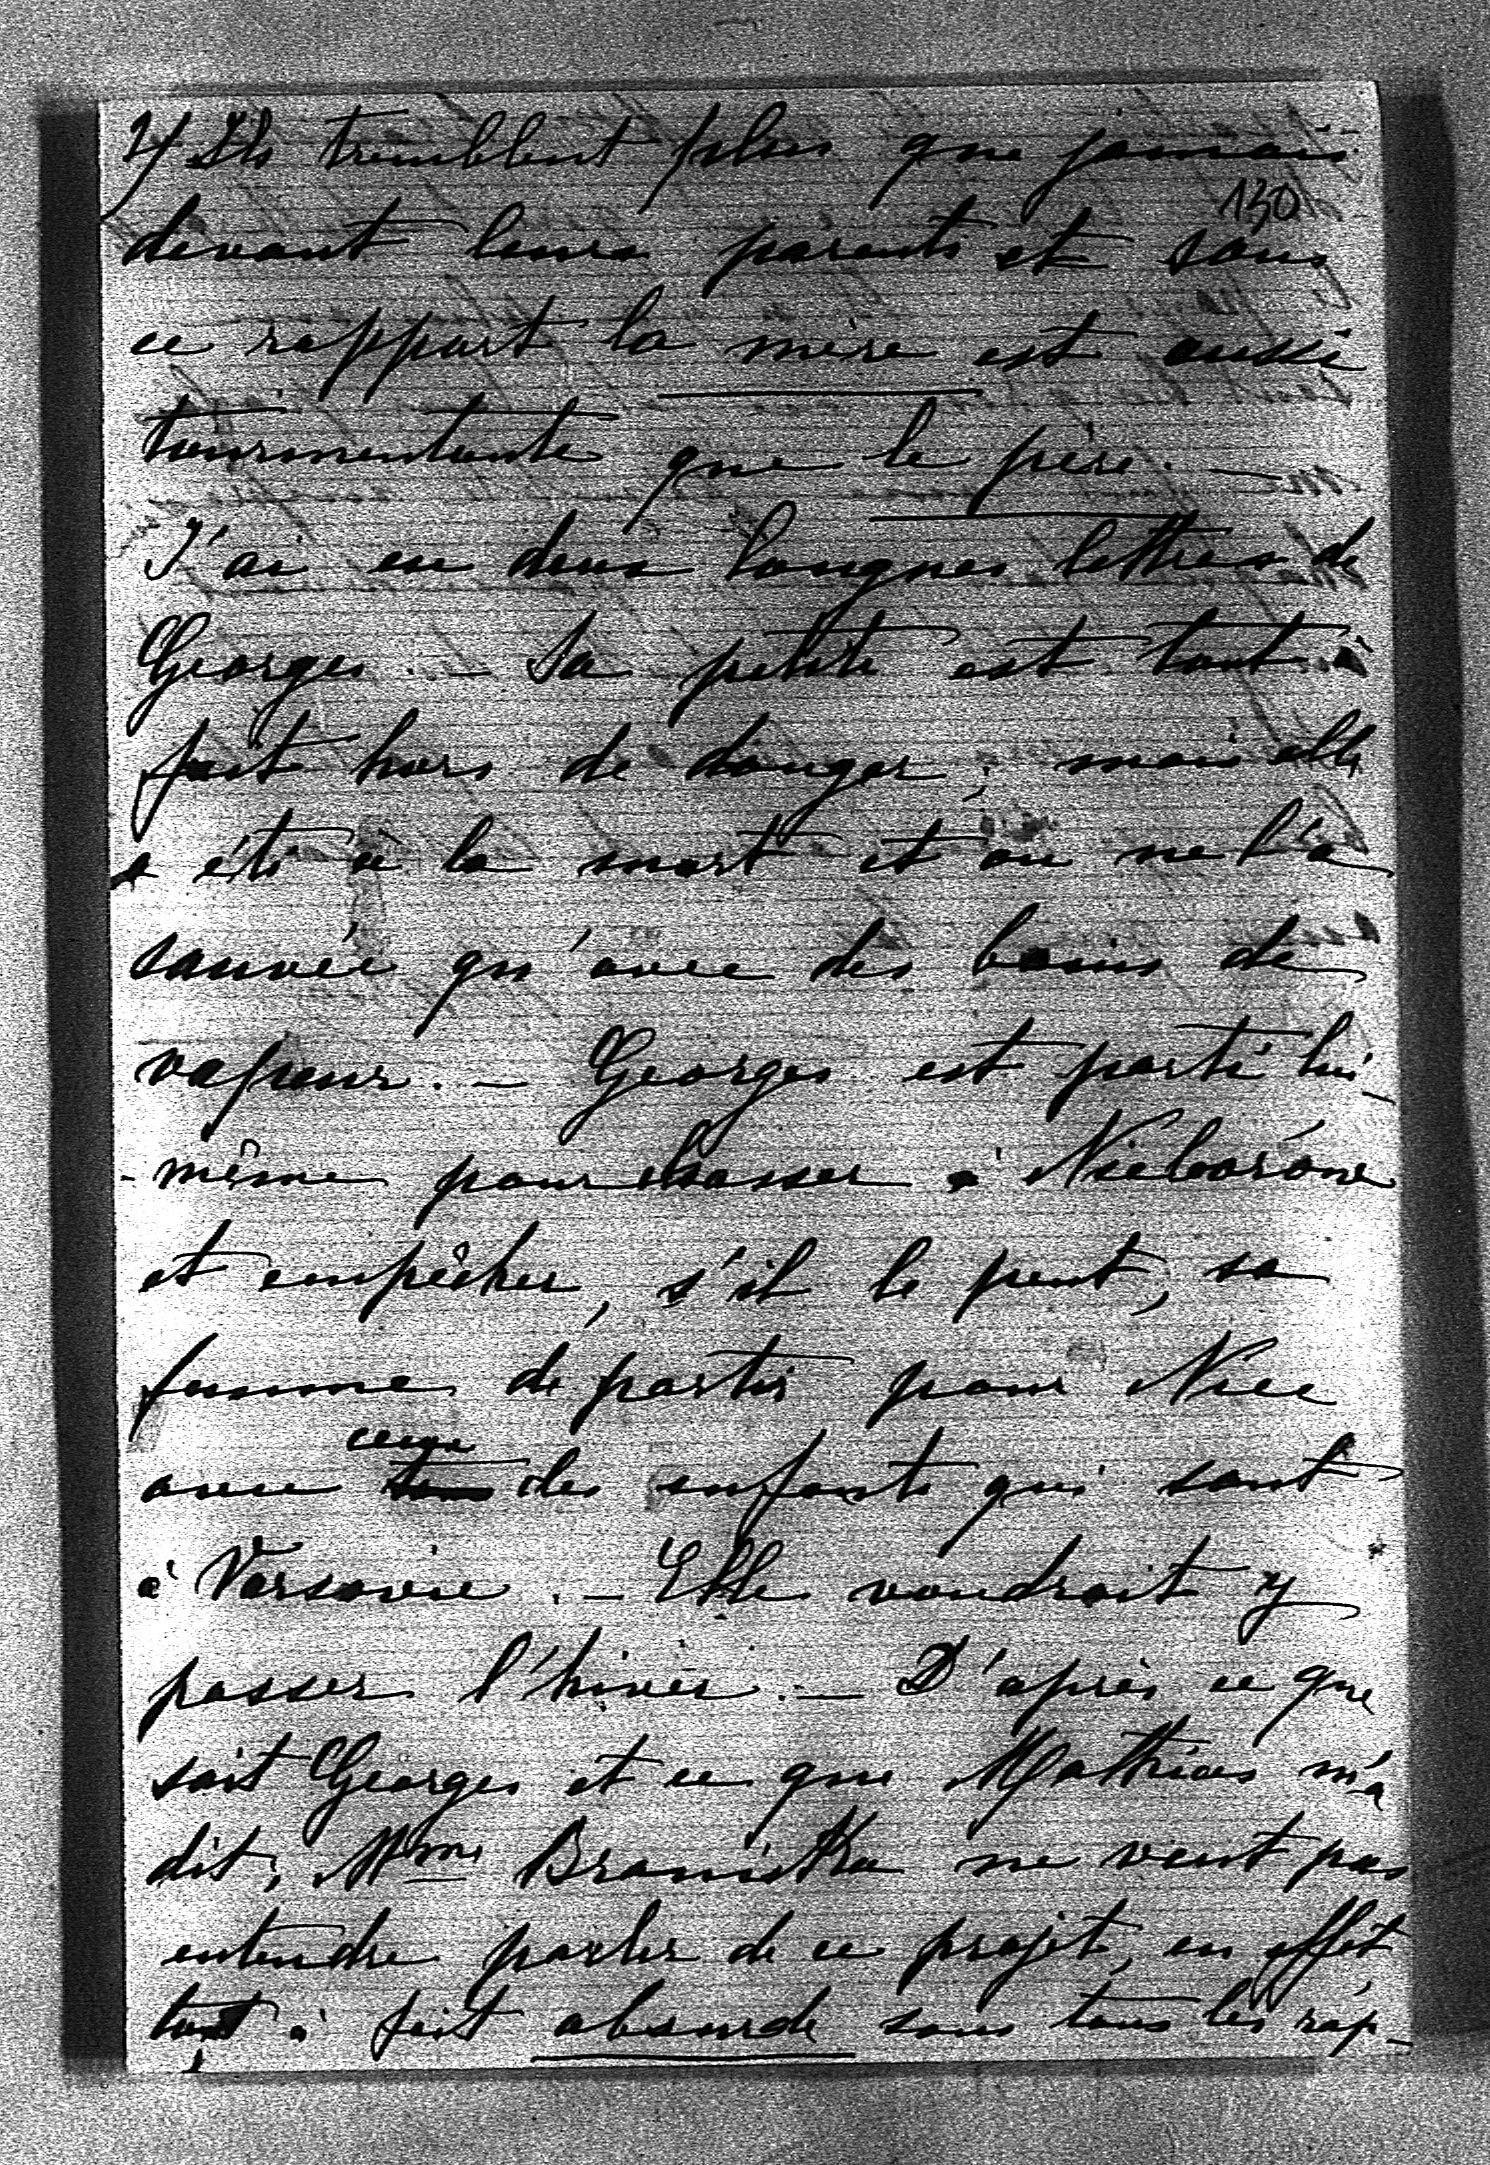 4/ Ils tremblent plus que jamais
130
devant leurs parents et sous
ce rapport la mère est aussi
tourmentante que le père. —
J'ai eu deux longues lettres de
Georges. — Sa petite est tout à
fait hors de danger; mais elle
a été à la mort et on ne l'a
sauvée qu'avec des bains de
vapeur. — Georges est parti lui-
-même pour chasser à Nieborów
et empêcher, s'il le peut, sa
femme de partir pour Nice
ceux
avec des enfants qui sont
à Varsovie. — Elle voudrait y
passer l'hiver. — D'après ce que
sait Georges et ce que Mathias m'a
dit, Mme Branicka ne veut pas
entendre parler de ce projet, en effet
tout à fait absurde sous tous les rap-